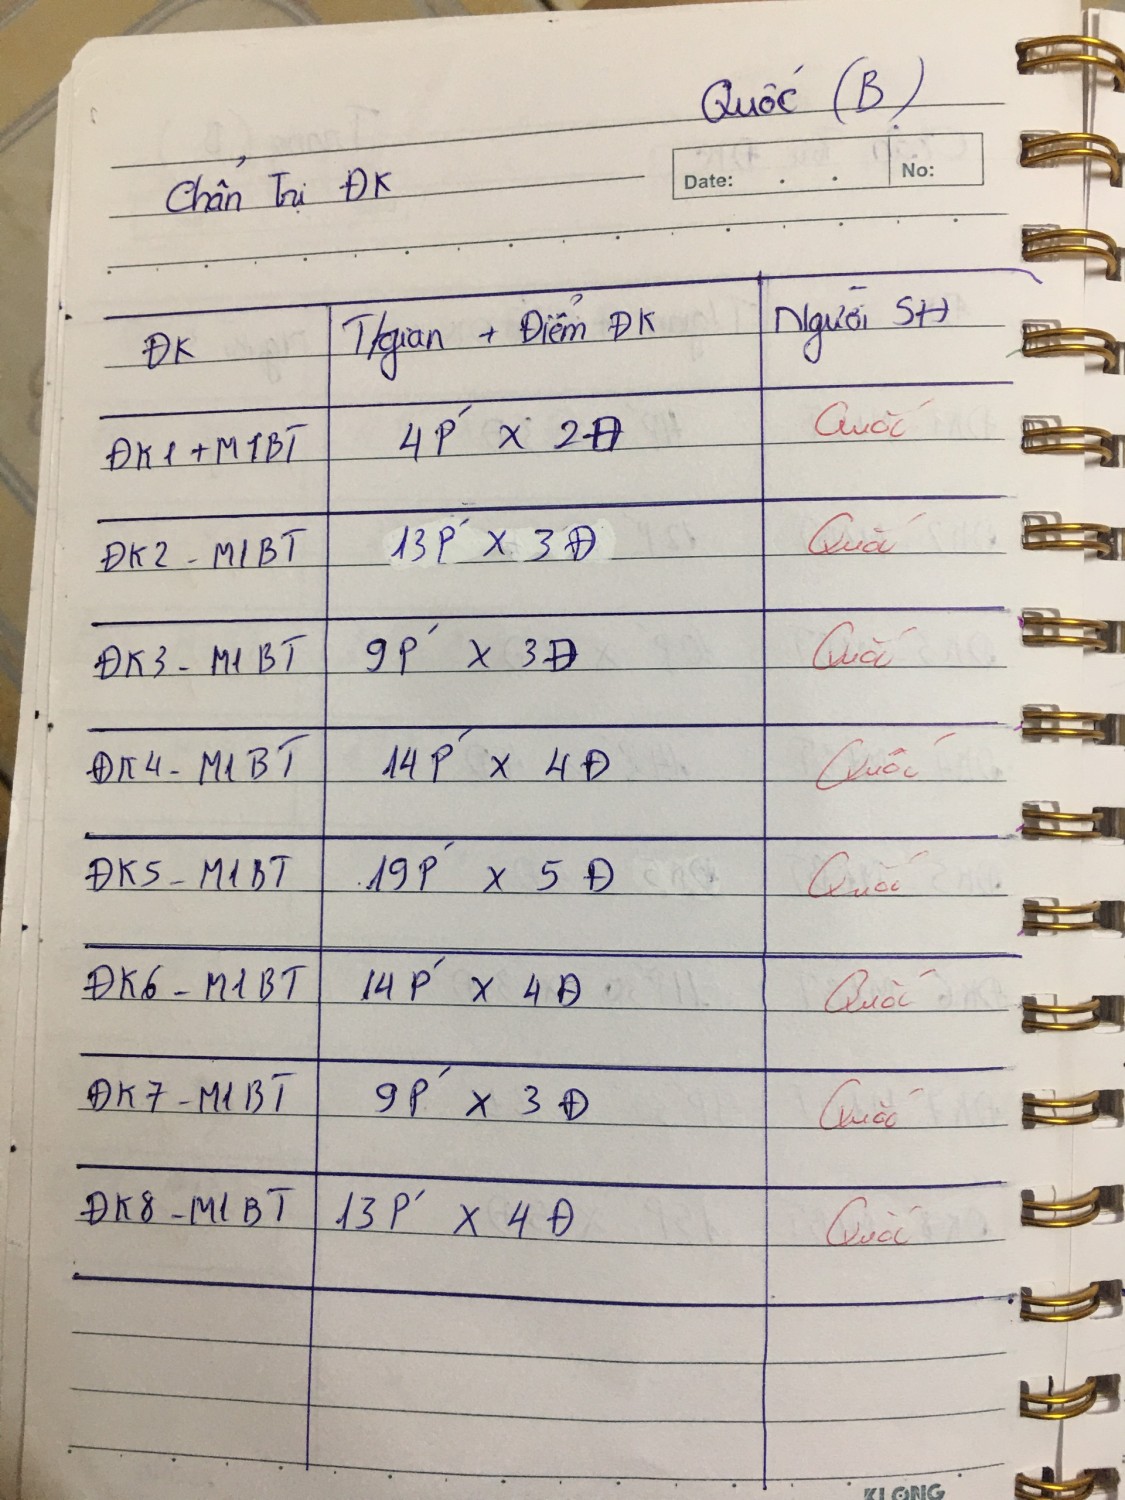 Quốc (B)
Chẩn Trị ĐK
Date: . . No:
ĐK T/gian + Điểm ĐK Người SH
ĐK1+M1BT 4P' x 2Đ Quốc
ĐK2-M1BT 13P' x 3Đ Quốc
ĐK3-M1BT 9P' x 3Đ Quốc
ĐK4-M1BT 14P' x 4Đ Quốc
ĐK5-M1BT 19P' x 5Đ Quốc
ĐK6-M1BT 14P' x 4Đ Quốc
ĐK7-M1BT 9P' x 3Đ Quốc
ĐK8-M1BT 13P' x 4Đ Quốc
KLONG